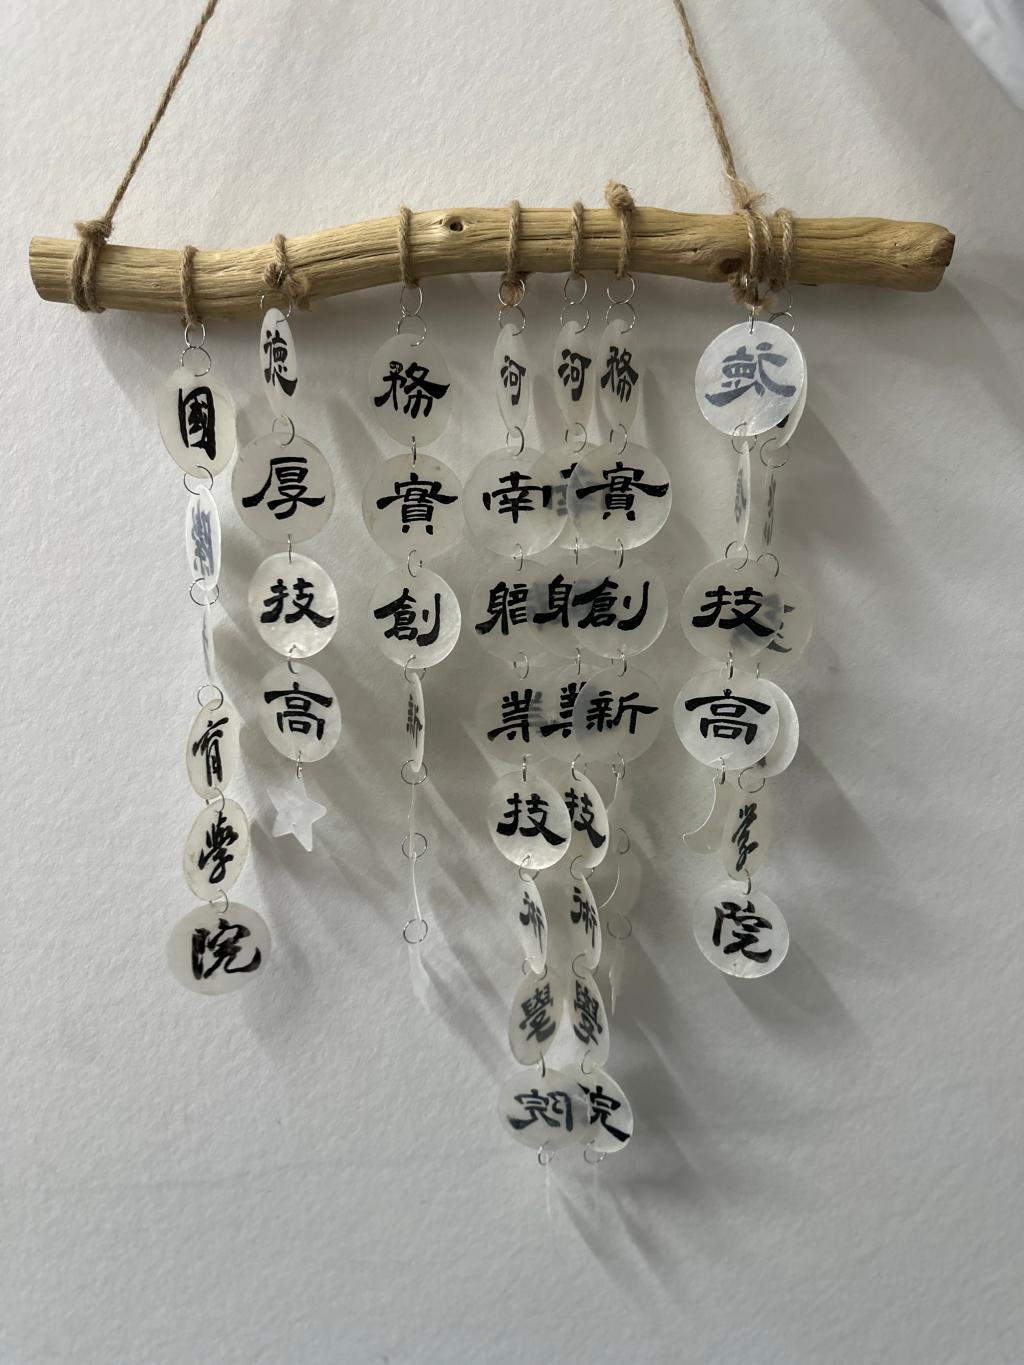 國際育學院
德厚技高
務實創新
河南職業技術學院
河南職業技術學院
務實創新
德厚技高
學院